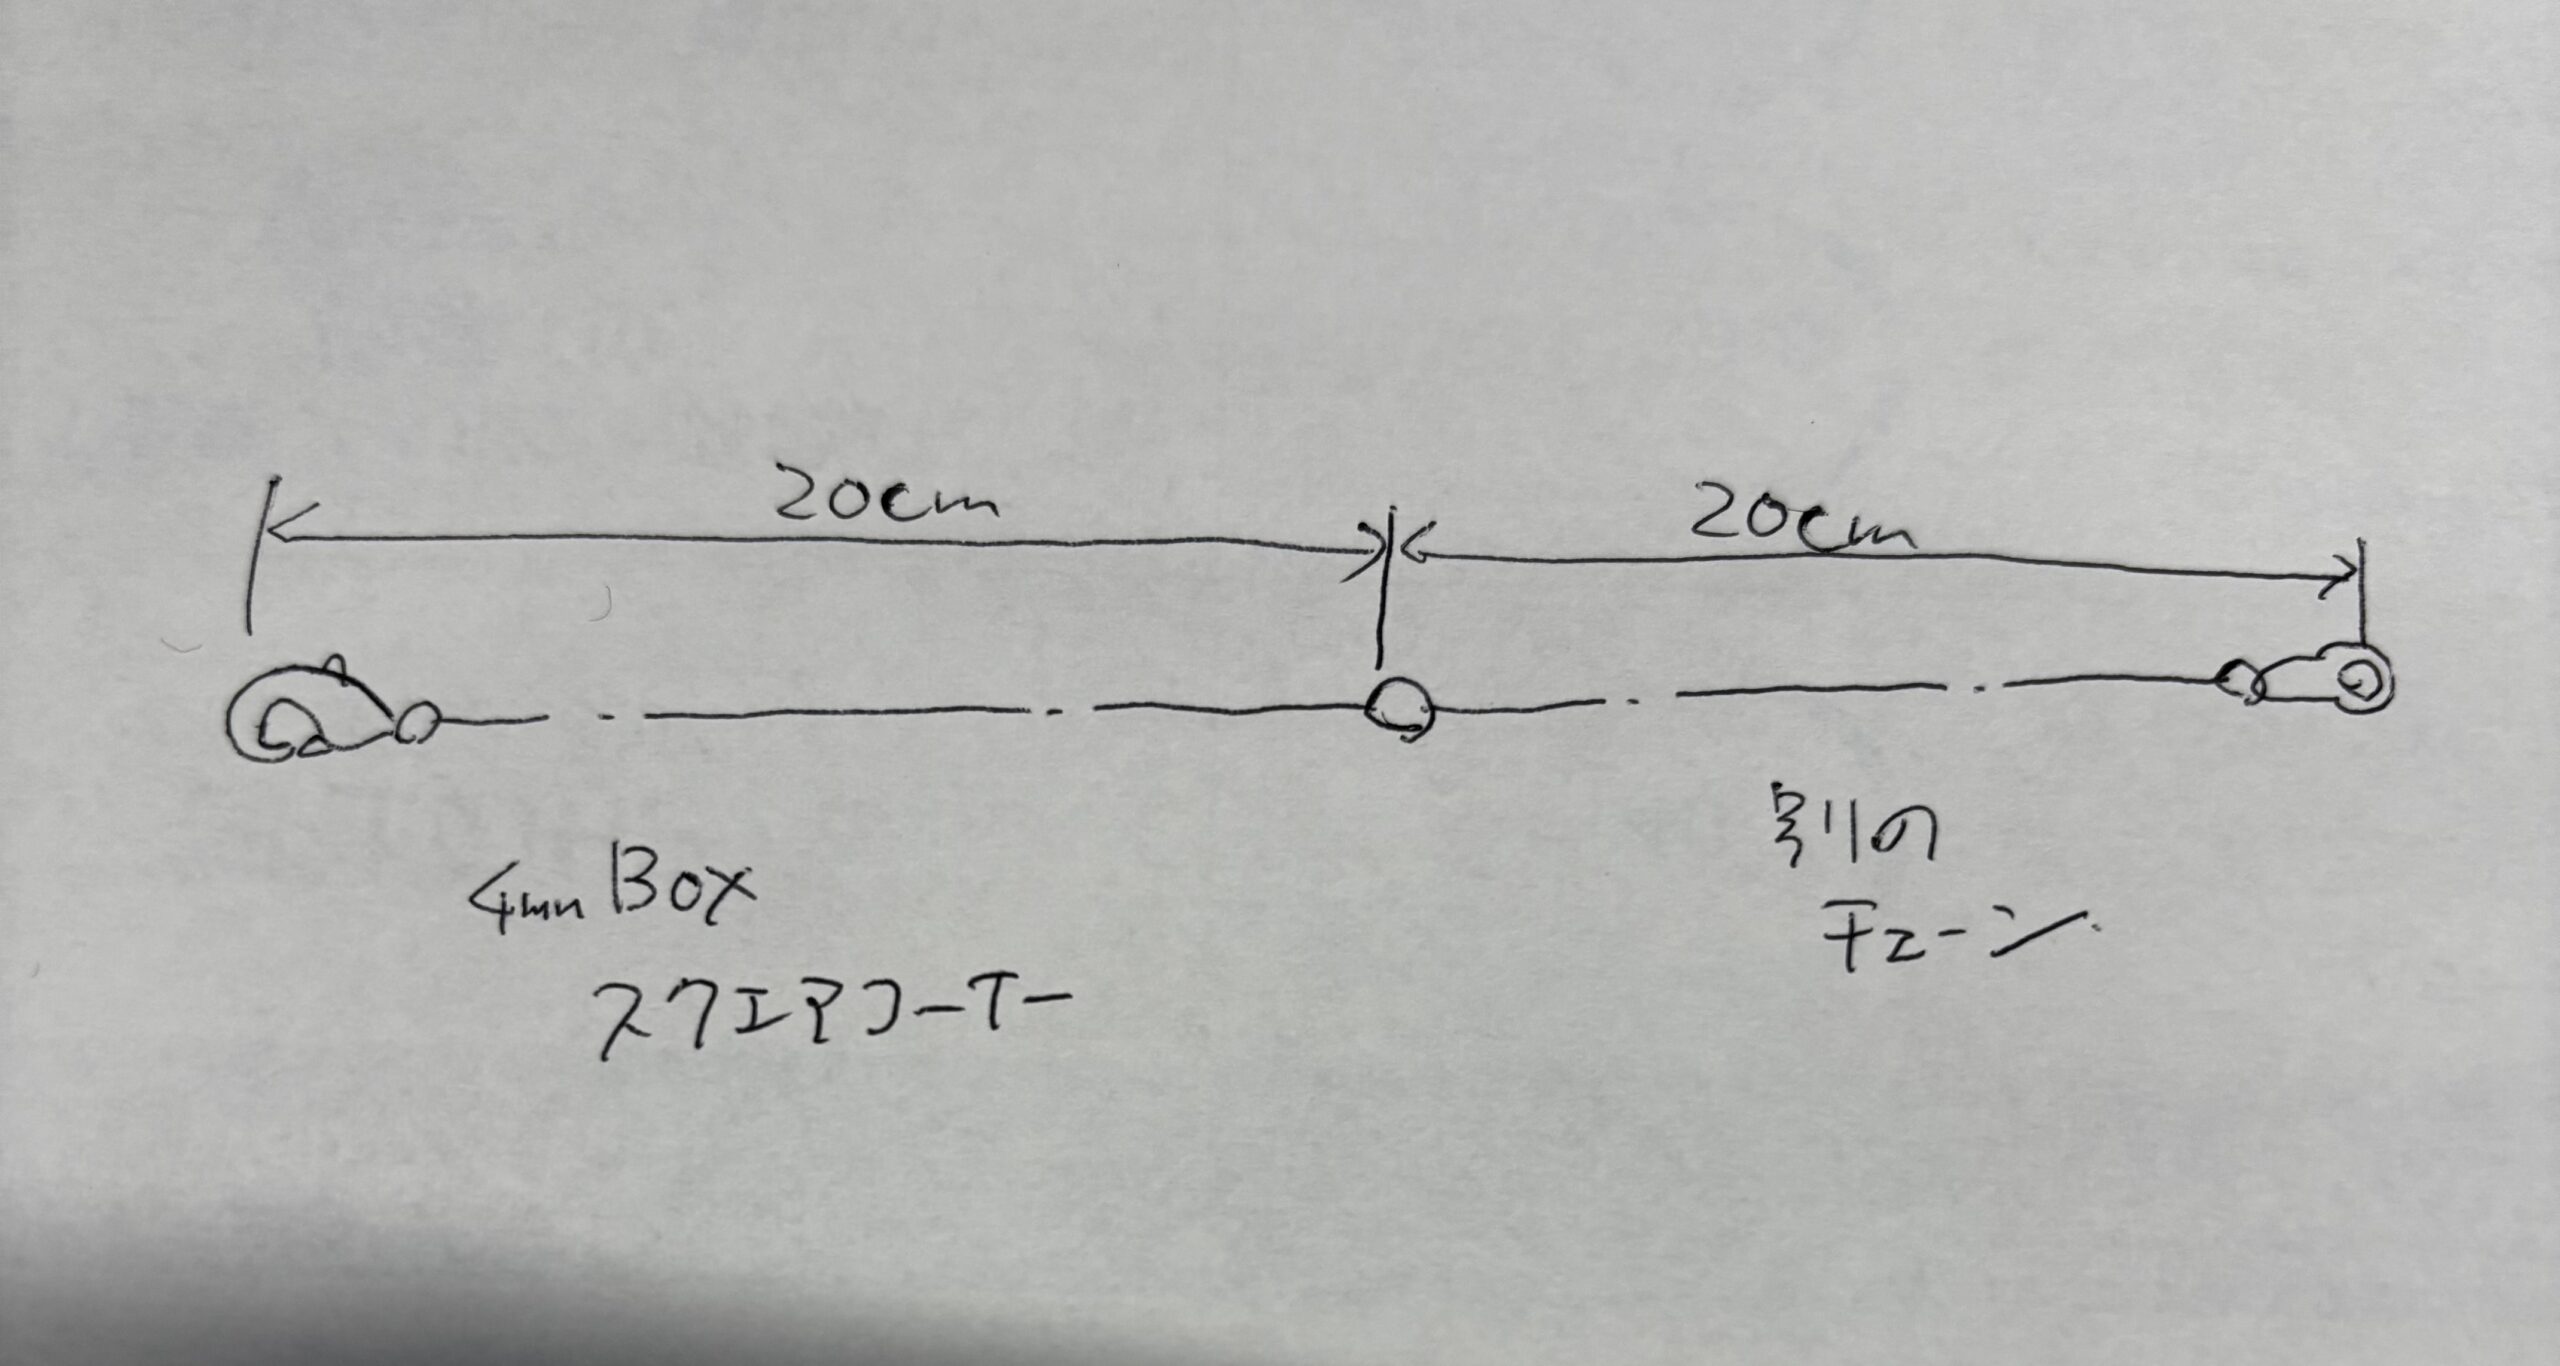 20cm
20cm
4mm Box
スクエアコーナー
別の
チェーン